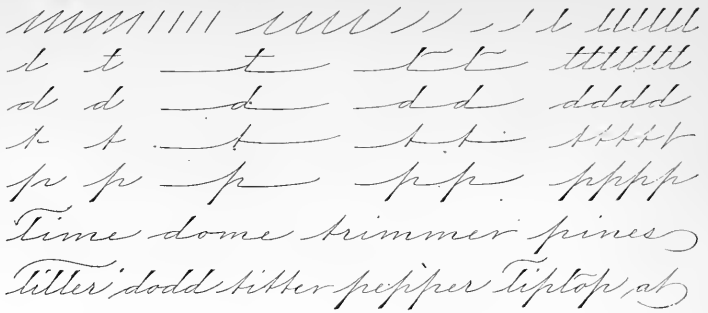 t t t t t tttttt
d d d d d dddd
t t t t t ttttt
p p p p p pppp
time dome trimmer pines
titter dodd titter pepper tiptop at